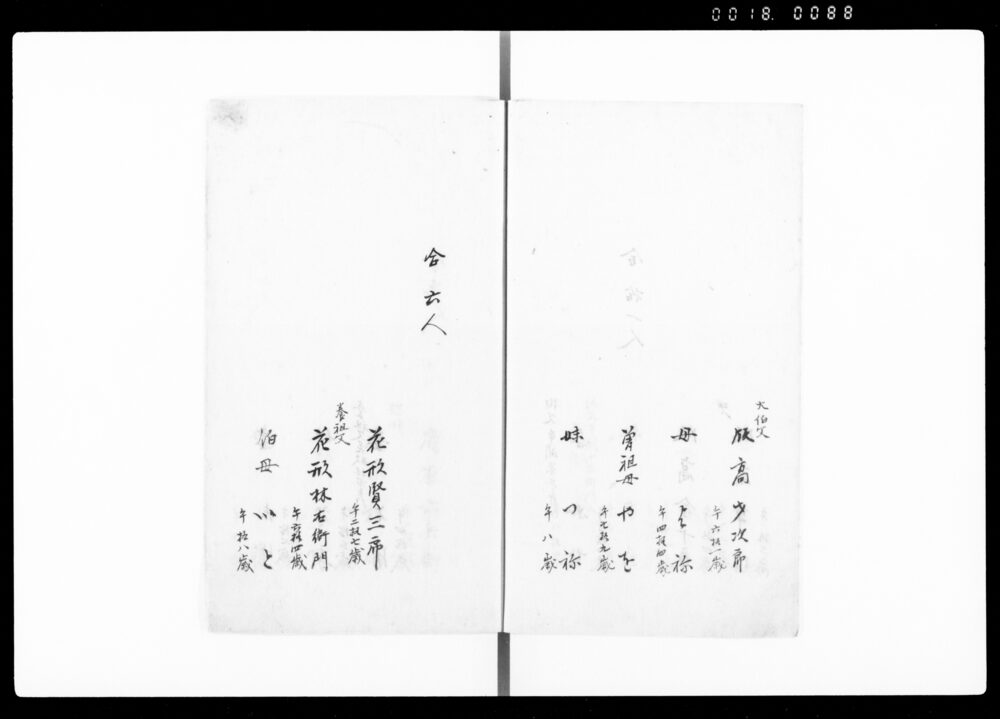 0018. 0088
大伯父
飯高才次郎
午六拾一歳
母 とみ祢
午四拾四歳
曽祖母 やを
午七拾九歳
妹 つ祢
午八歳
合六人
花形賢三郎
午二拾七歳
養祖父
花形林右衛門
午六拾四歳
伯母 いと
午拾八歳